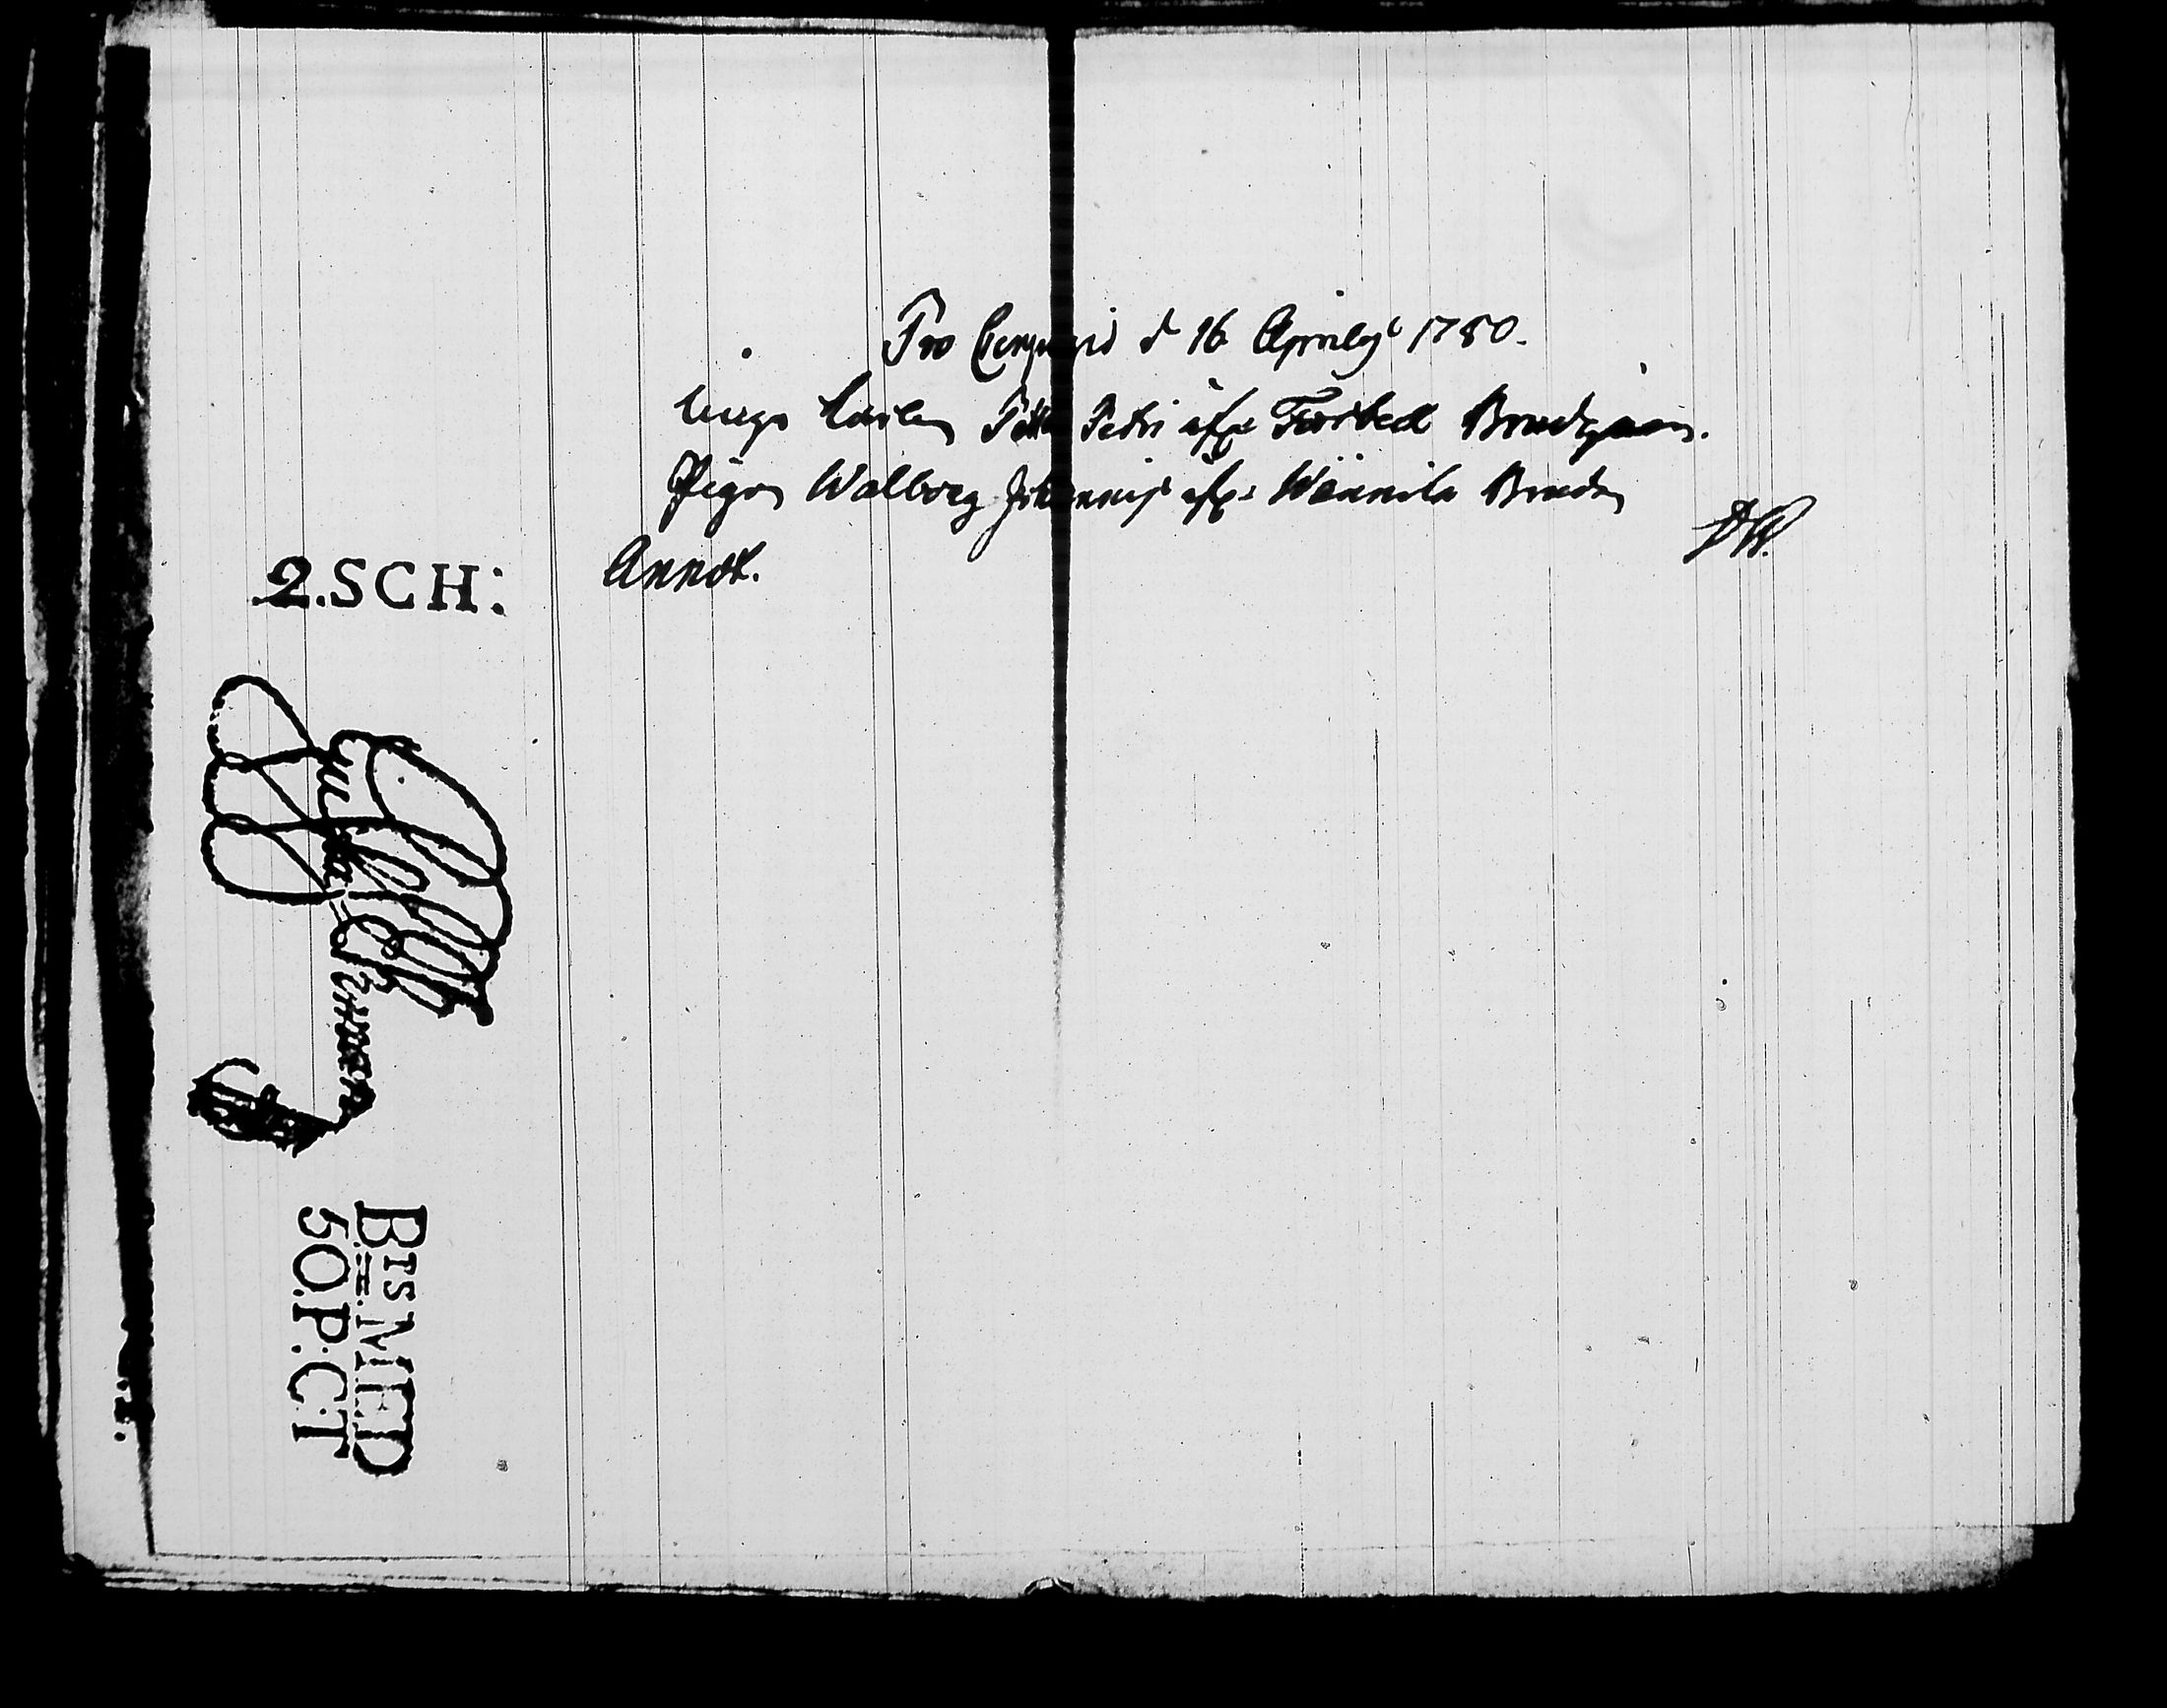 Pro Copuqis d 16 Aprilis 1780.
unge Karlen Petter Petri ifrån Torbed Brudgum.
Pigan Walborg Johannis ifrån Wännila Bruden
Annot.
2.SCH:
BTS MED
50.P:C:T